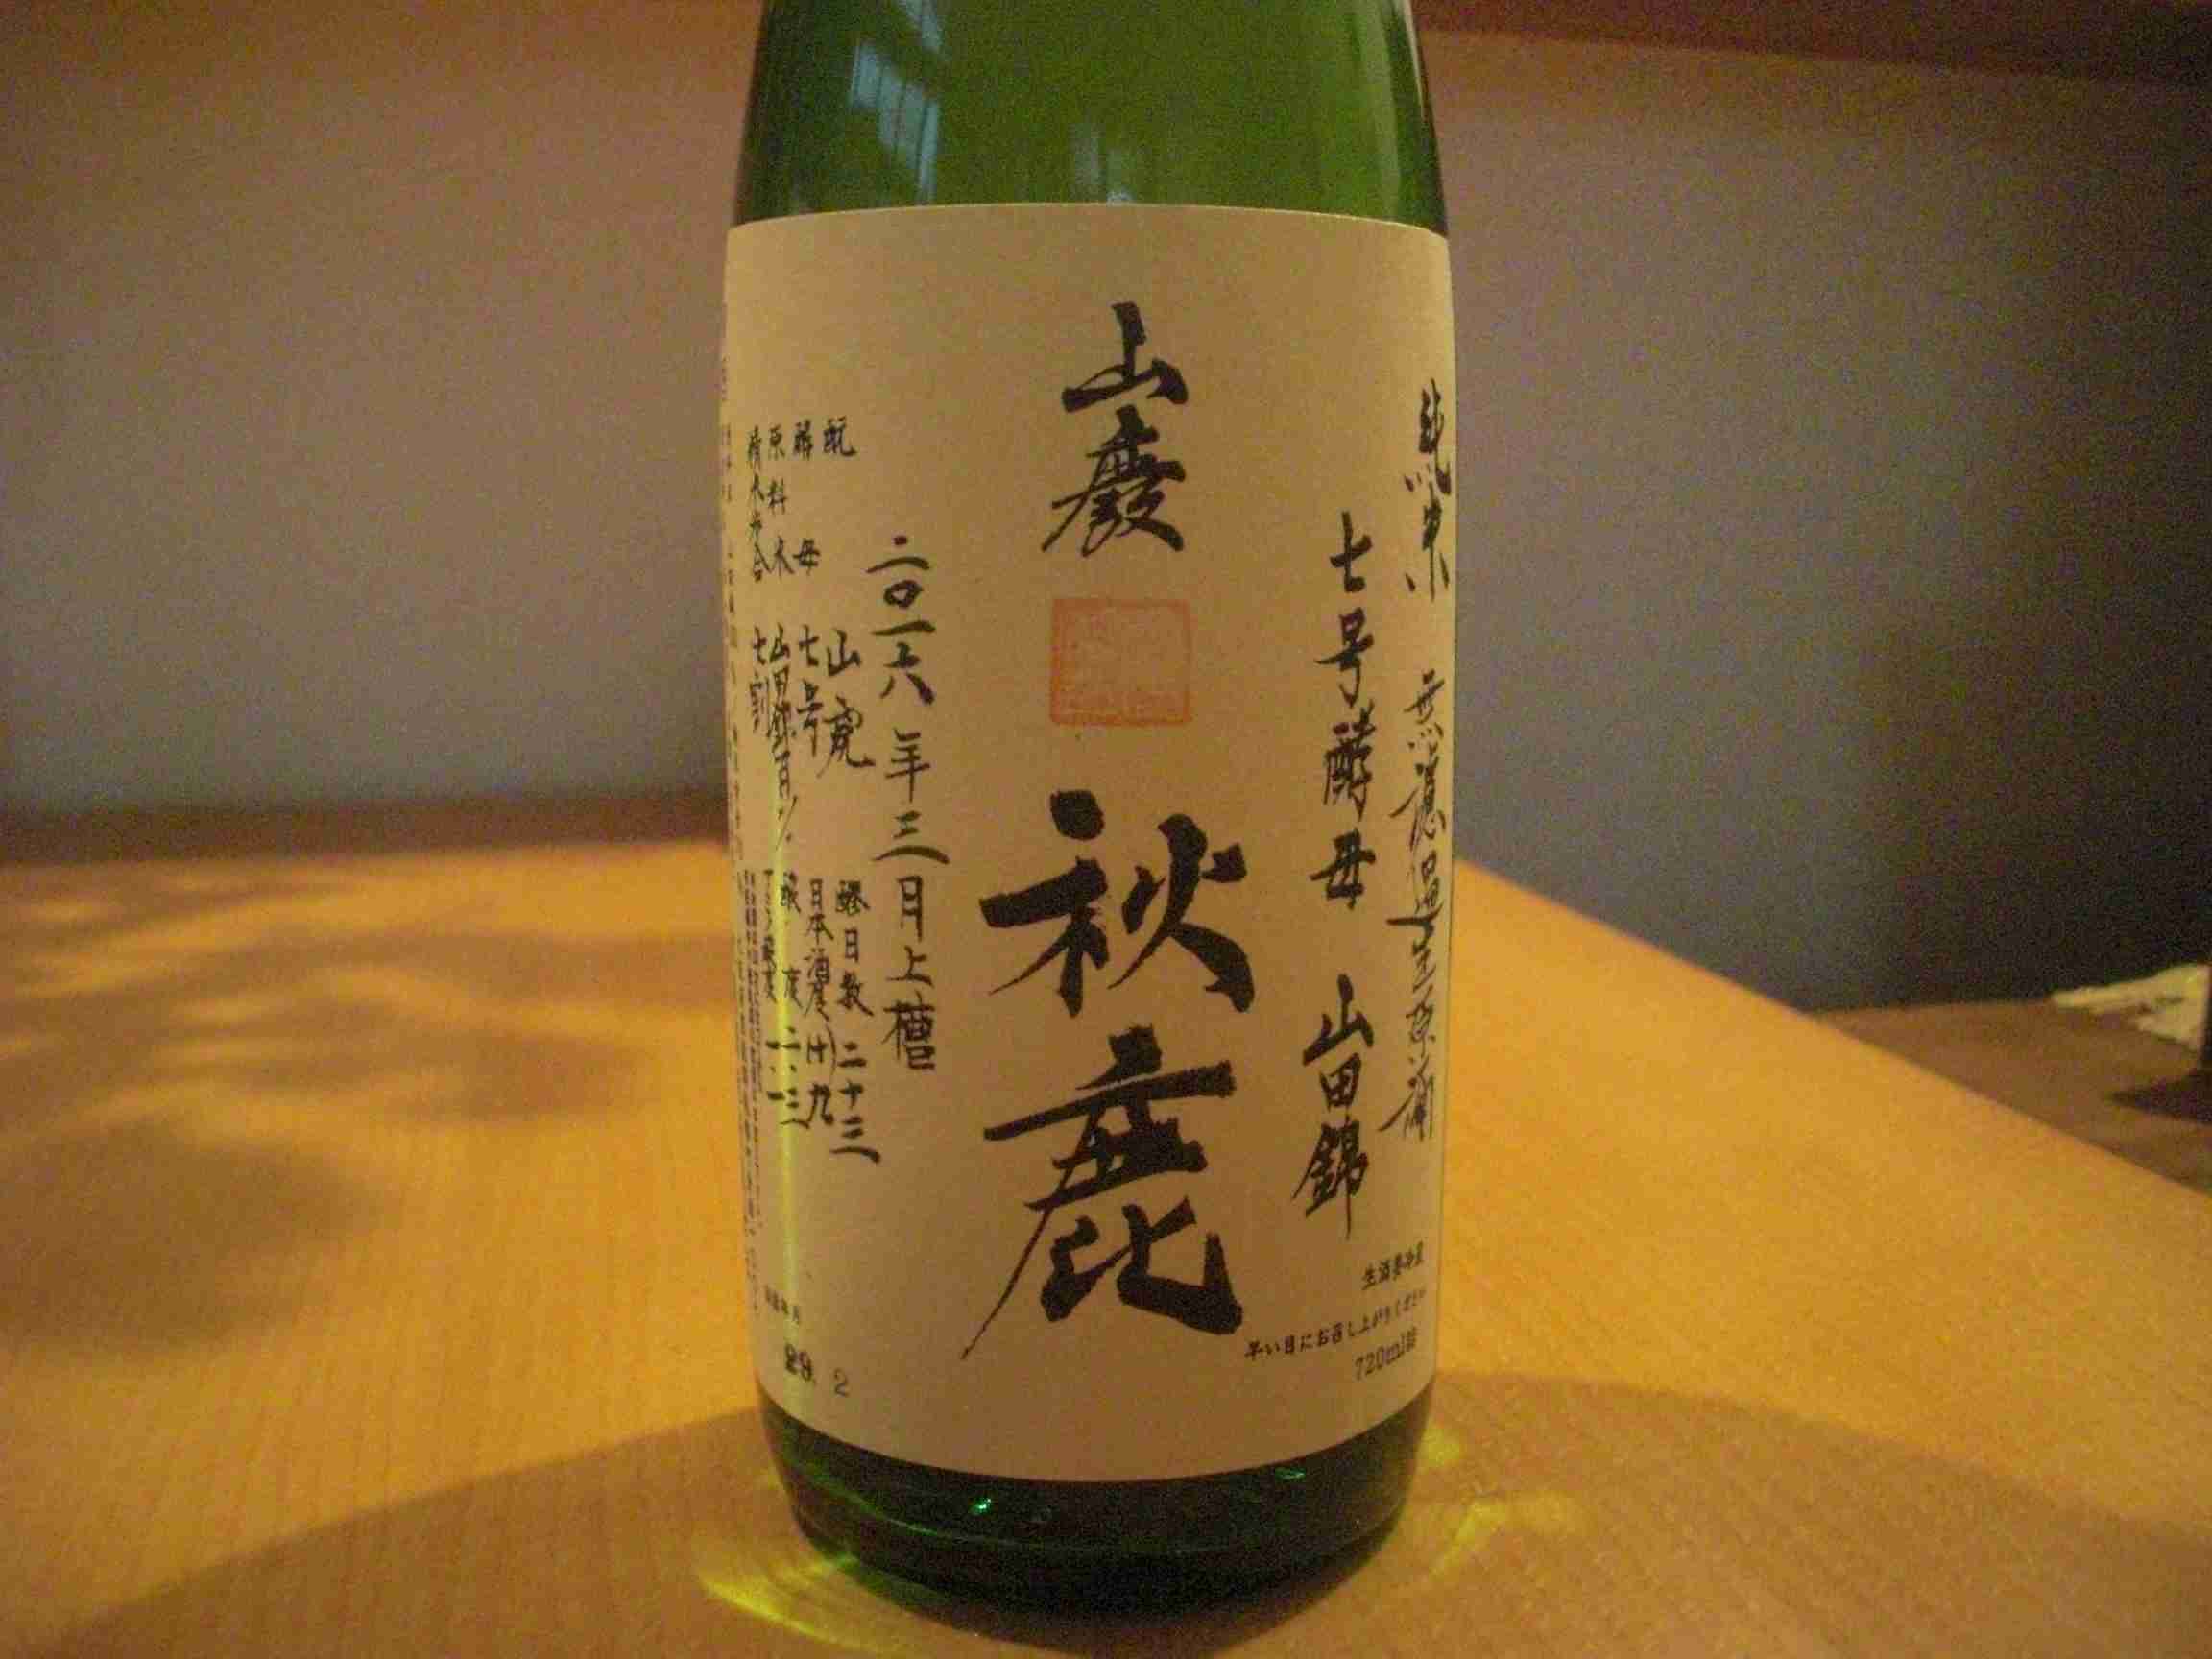 純米 無濾過生原酒
七号酵母 山田錦
生酒要冷蔵
早い目にお召し上がりください
720ml詰
山廃
秋鹿
二〇一六年三月上槽
酛 山廃
酵母 七号
原料米 山田錦
精米歩合 七割
醪日数 二十三
日本酒度 (十)九
酸度 二.三
アミノ酸度 一.一
製造年月
29. 2